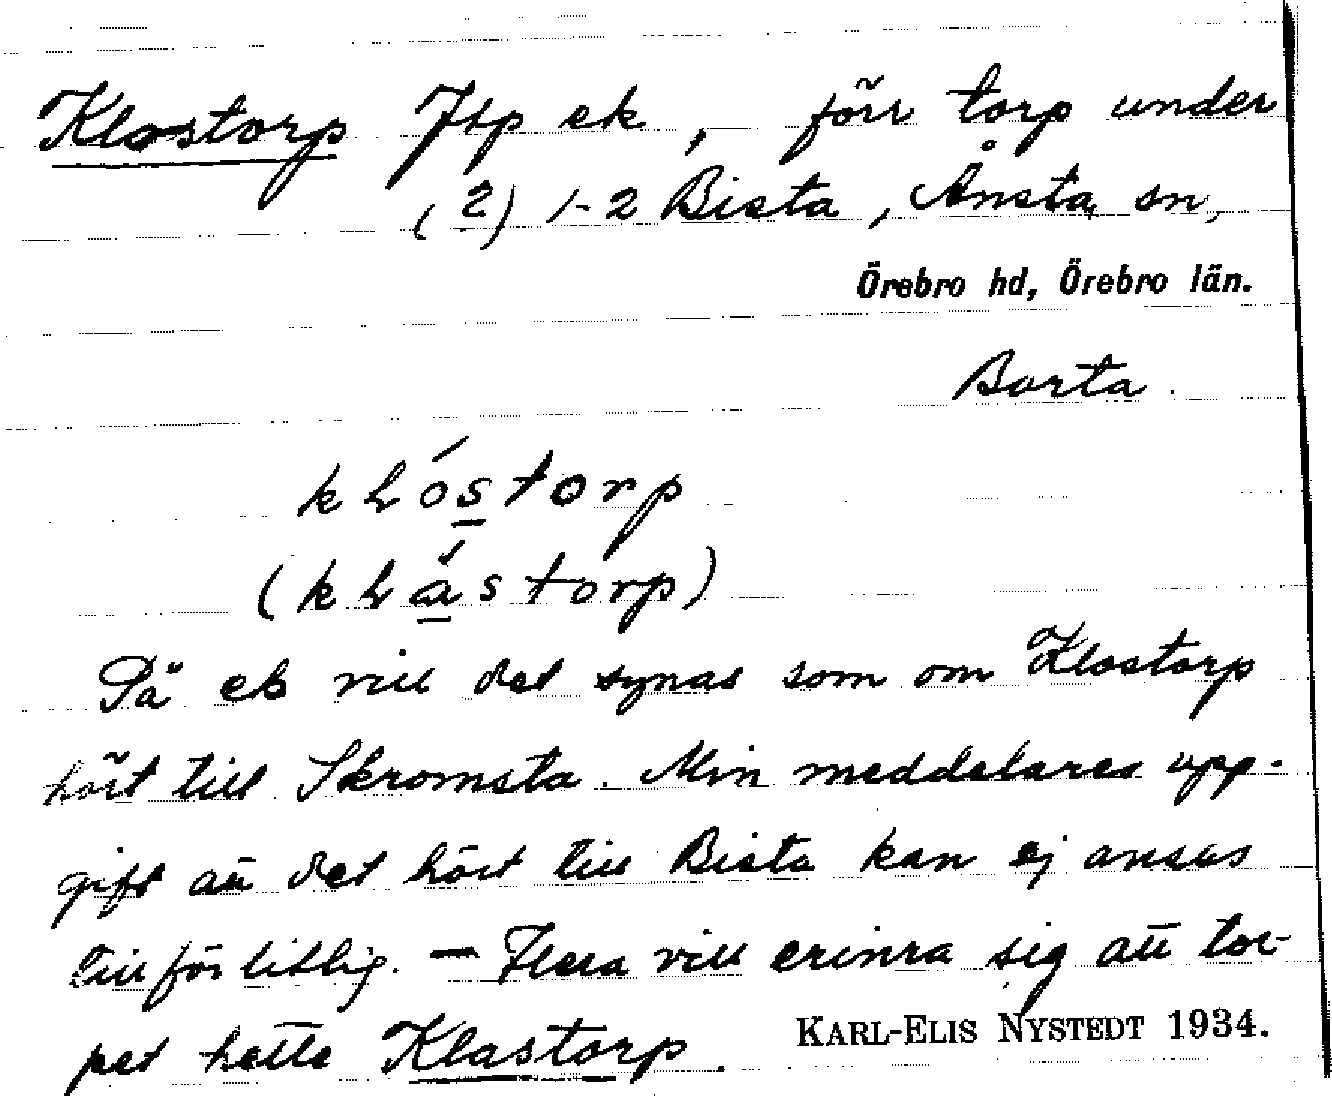 Klostorp Jtp ek, förr torp under
(2) 1-2 Bista, Ånsta sn,
Örebro hd, Örebro län.
Borta.
På ek vill det synas som om Klostorp
hört till Skromsta. Min meddelares upp-
gift att det hört till Bista kan ej anses
tillförlitlig. — Flera vill erinra sig att tor-
pet hette Klastorp.
KARL-ELIS NYSTEDT 1934.